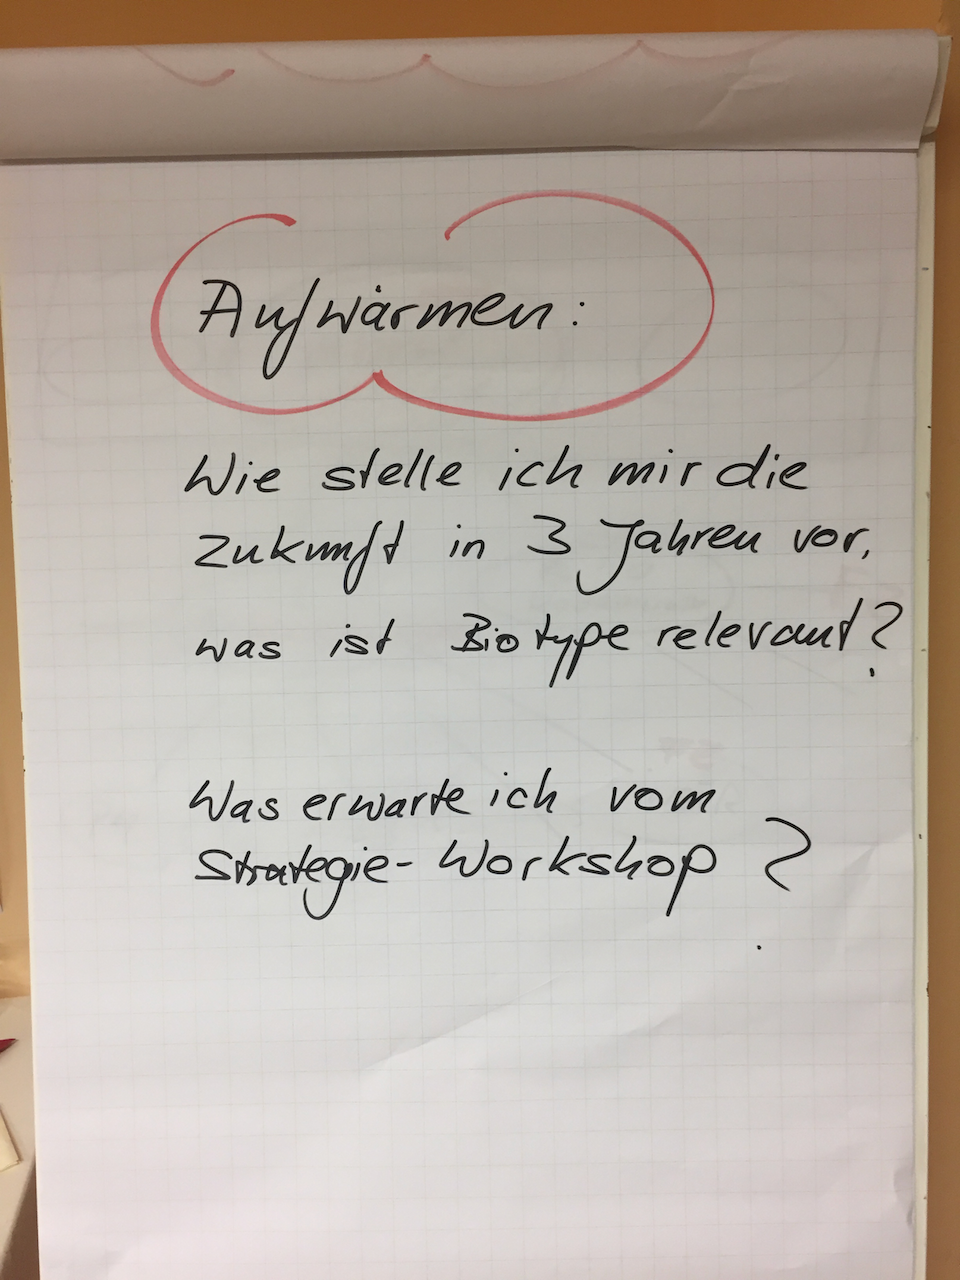 Aufwärmen:
Wie stelle ich mir die
Zukunft in 3 Jahren vor,
was ist Biotype relevant?
Was erwarte ich vom
Strategie-Workshop?